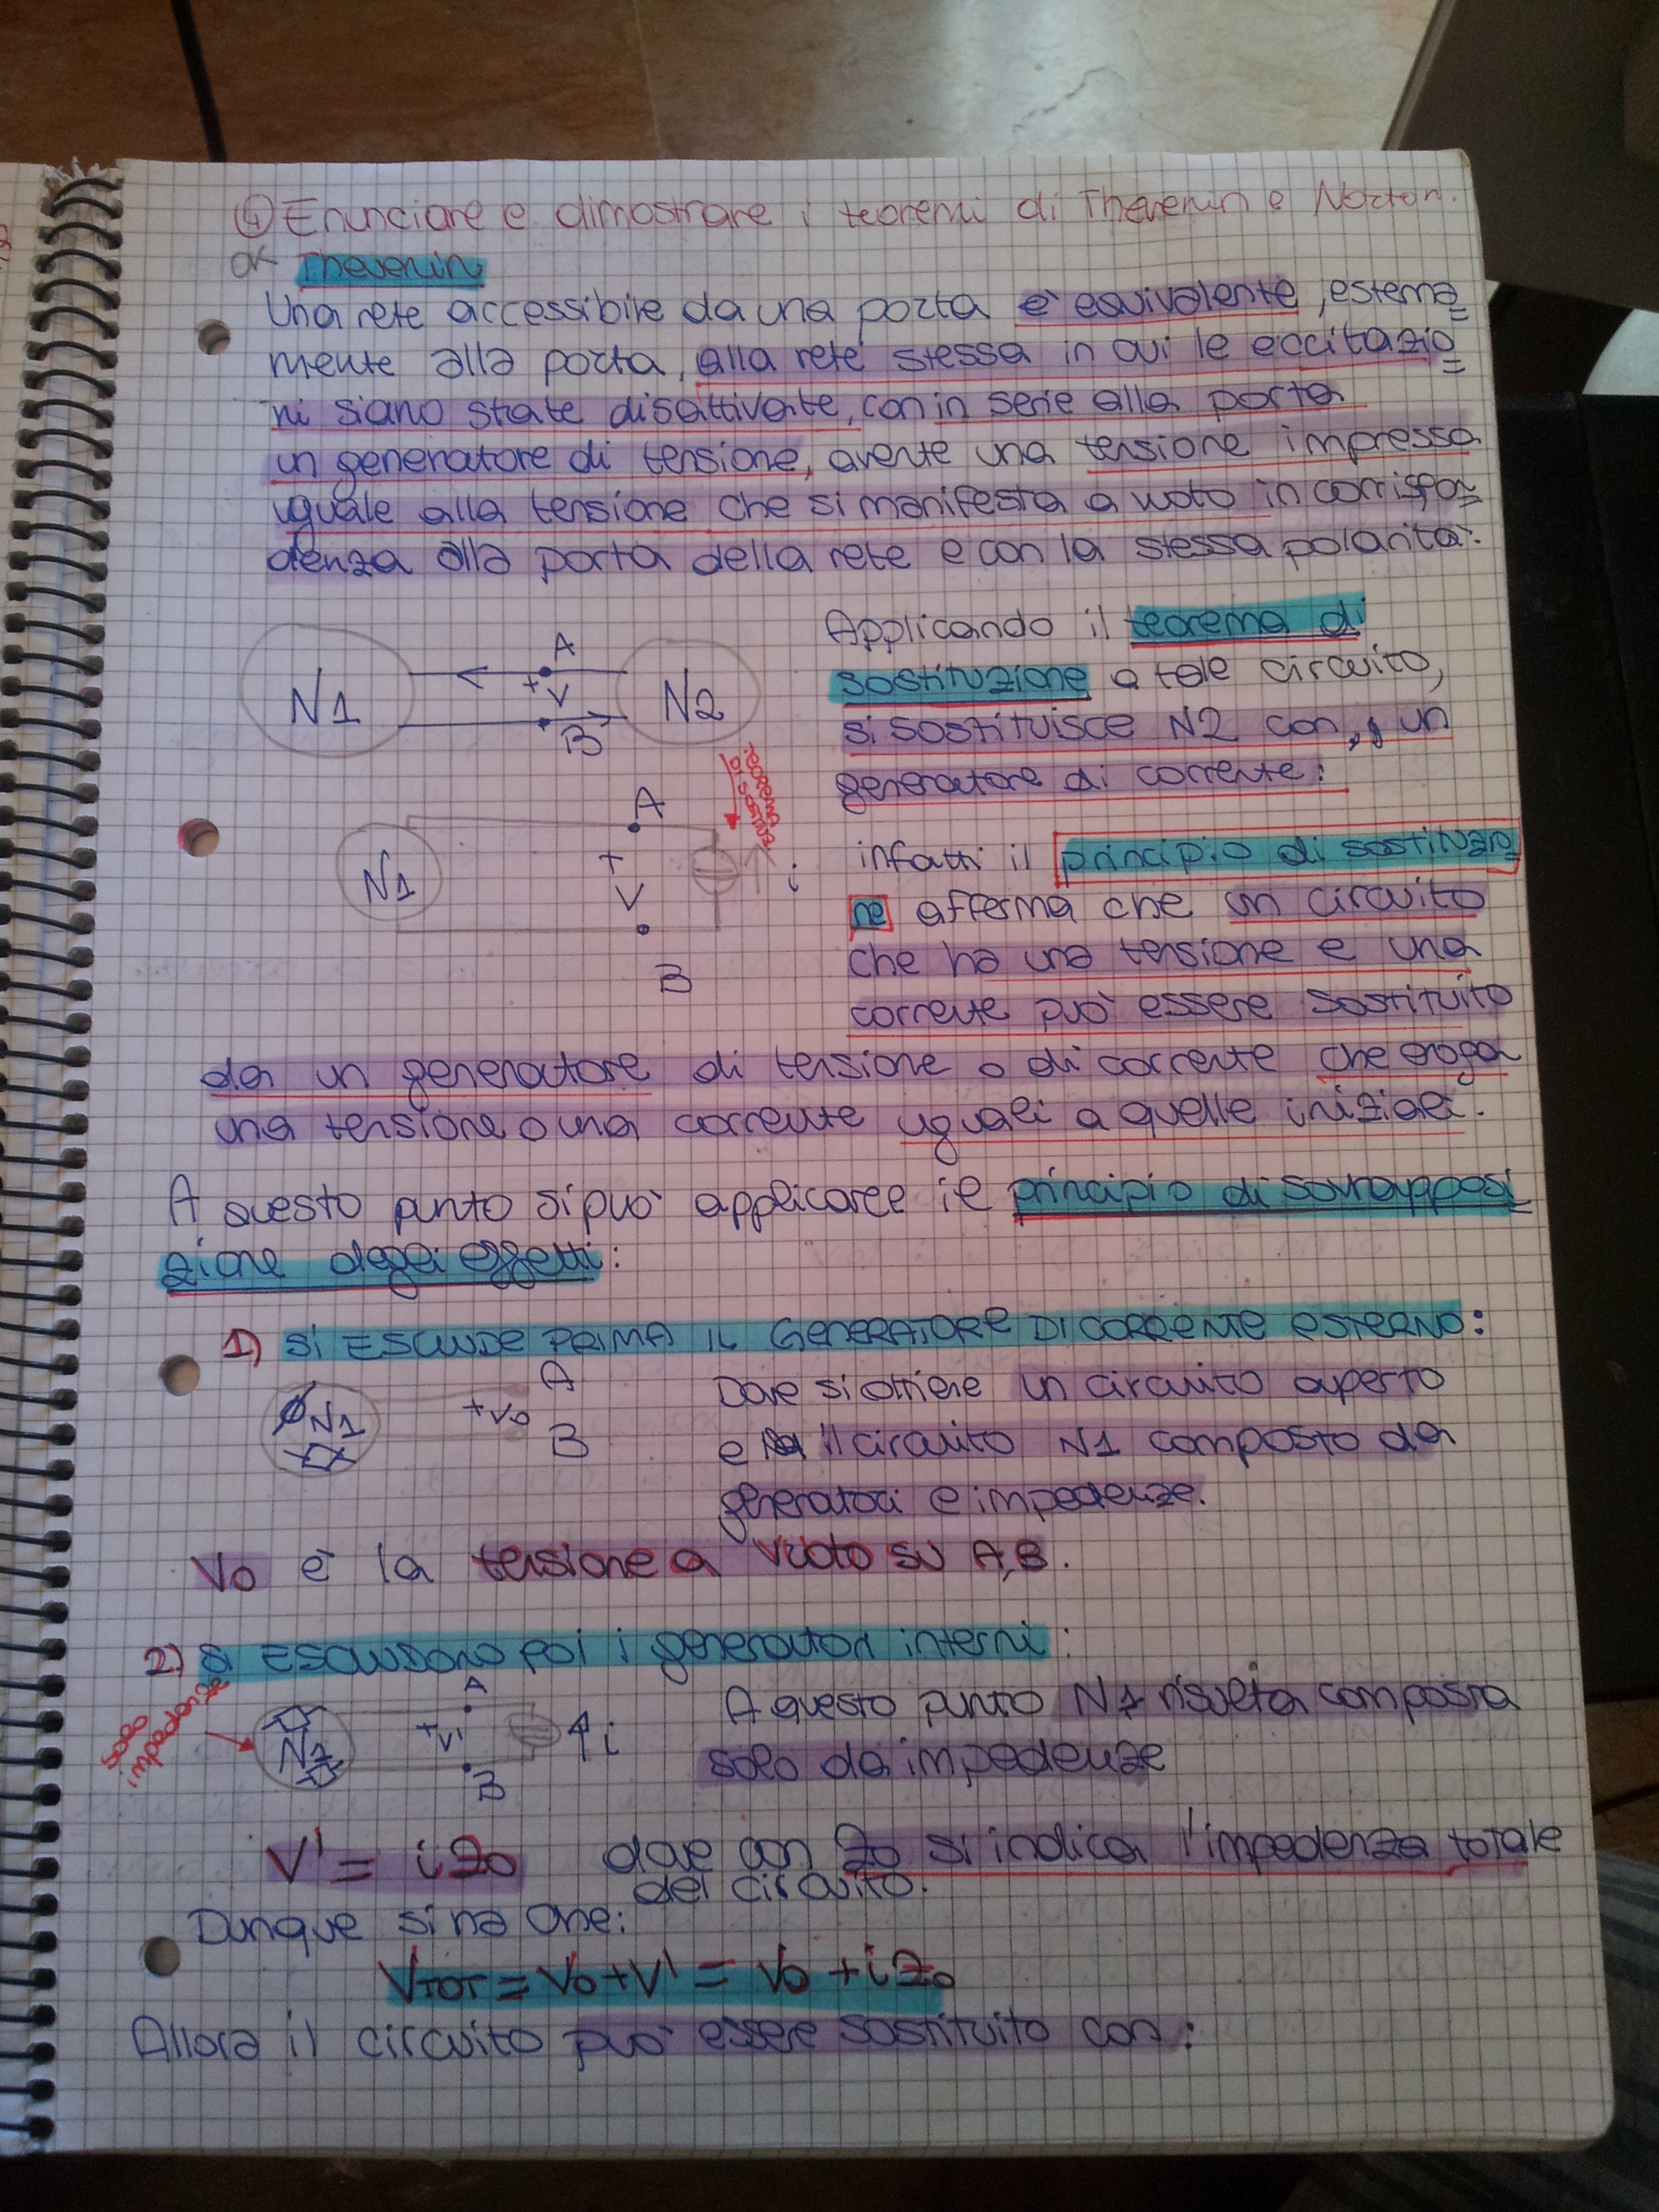 ④ Enunciare e dimostrare i teoremi di Thevenin e Norton.
OK Thevenin
Una rete accessibile da una porta è equivalente, esterna=
mente alla porta, alla rete stessa in cui le eccitazio=
ni siano state disattivate, con in serie alla porta
un generatore di tensione, avente una tensione impressa
uguale alla tensione che si manifesta a vuoto in corrispon=
denza alla porta della rete e con la stessa polarità.
Applicando il teorema di
sostituzione a tale circuito,
si sostituisce N2 con un
generatore di corrente:
N1
A
+ V
B
N2
teorema
di sostituz
infatti il principio di sostituzio=
ne afferma che un circuito
che ha una tensione e una
corrente può essere sostituito
N1
A
+
V
B
i
da un generatore di tensione o di corrente che eroga
una tensione o una corrente uguali a quelle iniziali.
A questo punto si può applicare il principio di sovrapposi=
zione degli effetti:
1) SI ESCLUDE PRIMA IL GENERATORE DI CORRENTE ESTERNO:
N1
+ Vo
A
B
Dove si ottiene un circuito aperto
e il circuito N1 composto da
generatori e impedenze.
Vo è la tensione a vuoto su A,B.
2) SI ESCLUDONO POI i generatori interni:
solo
impedenze
N1
A
+ V'
B
i
A questo punto N1 risulta composta
solo da impedenze
V' = iZo dove con Zo si indica l'impedenza totale
del circuito.
Dunque si ha che:
VTOT = Vo + V' = Vo + iZo
Allora il circuito può essere sostituito con: